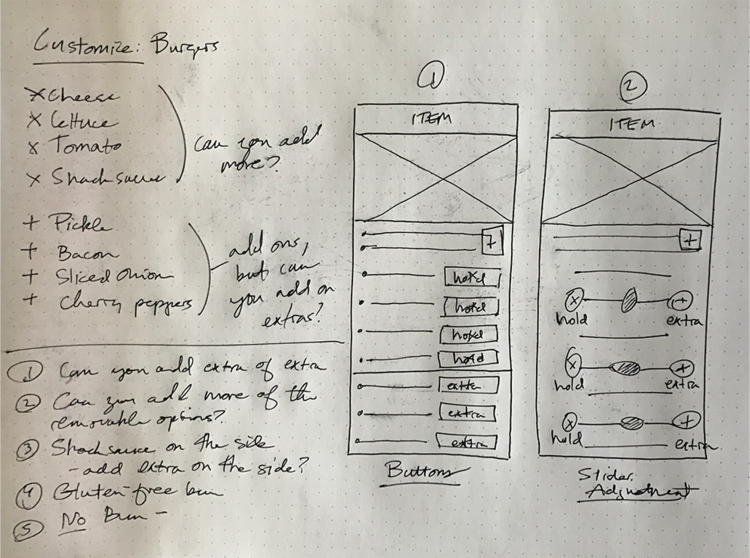 Customize: Burgers
x Cheese
x Lettuce
x Tomato
x Shack sauce
Can you add
more?
+ Pickle
+ Bacon
+ Sliced Onion
+ Cherry peppers
add ons,
but can
you add on
extras?
① Can you add extra of extra
② Can you add more of the
removable options?
③ Shack sauce on the side
- add extra on the side?
④ Gluten-free bun
⑤ No Bun -
①
ITEM
+
hold
hold
hold
hold
extra
extra
extra
Buttons
②
ITEM
+
x +
hold extra
x +
hold extra
x +
hold extra
Slider
Adjustment